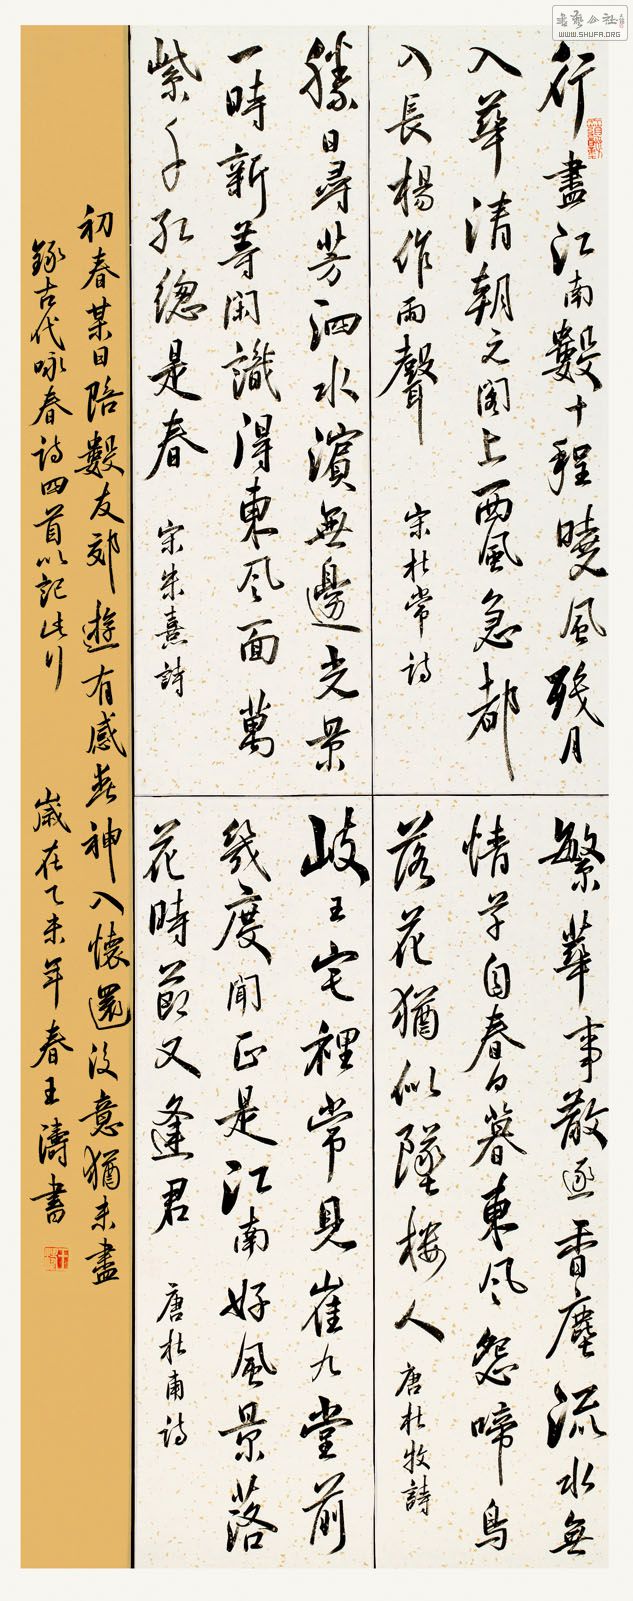 行盡江南數十程曉風殘月
入華清朝元閣上西風急都
入長楊作雨聲 宋杜常詩
勝日尋芳泗水濱無邊光景
一時新等閑識得東風面萬
紫千紅總是春 宋朱熹詩
繁華事散逐香塵流水無
情草自春日暮東風怨啼鳥
落花猶似墜樓人 唐杜牧詩
岐王宅裡常見崔九堂前
幾度聞正是江南好風景落
花時節又逢君 唐杜甫詩
初春某日陪數友郊遊有感春神入懷還後意猶未盡
錄古代咏春詩四首以記此行 歲在乙未年春王濤書
書藝公社
WWW.SHUFA.ORG